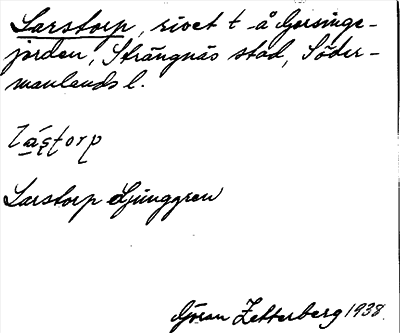 Larstorp, rivet t. på Gersinge-
jorden, Strängnäs stad, Söder-
manlands l.
lástorp
Larstorp Ljunggren
Göran Zetterberg 1938.